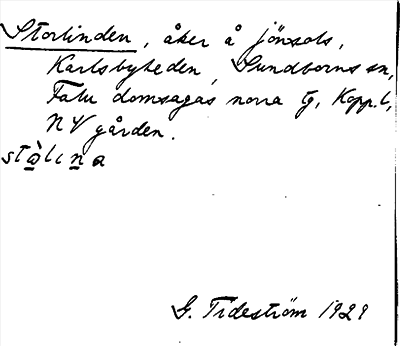 Storlinden, åker å Jönsols,
Karlsbyheden, Sundborns sn,
Falu domsagas norra tg, Kopp. l,
NV gården.
stàlina
G. Tideström 1929